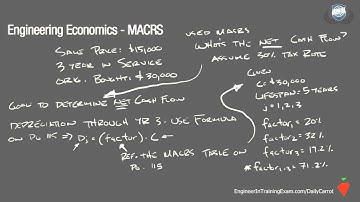 Engineering Economics - MACRS
SALE PRICE: $15,000
3 YEAR IN SERVICE
ORIG. BOUGHT: $30,000
GOAL TO DETERMINE NET CASH FLOW
DEPRECIATION THROUGH YR 3. USE FORMULA
ON PG 115 ⇒ Dj = (factor) · C
REF. THE MACRS TABLE ON
PG. 115
USED MACRS
WHAT'S THE NET CASH FLOW?
ASSUME 30% TAX RATE
GIVEN
C = $30,000
LIFESPAN = 5 YEARS
j = 1, 2, 3
factor1 = 20%
factor2 = 32%
factor3 = 19.2%
*factor1-3 = 71.2%
EngineerInTrainingExam.com/DailyCarrot